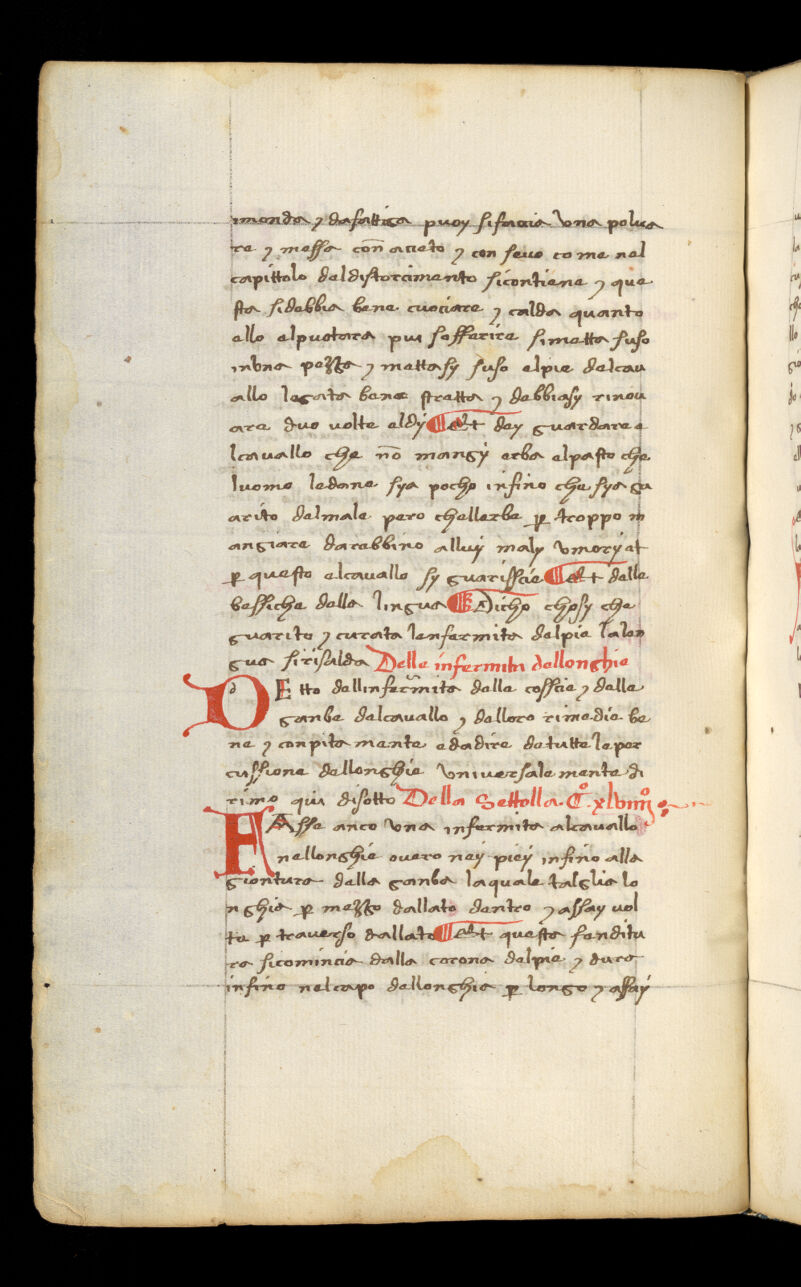 imonda ⁊ dafattica puoy sifaccia una polua
re ⁊ messa con̄ acieto ⁊ con seuo come nel
capittolo deldistorcimento sicontiene ⁊ que
sta sidebbia bene cuociere ⁊ calda quanto
ello elpuotera piu sofferire simetta suso
inuna pezza ⁊ mettasy suso elpie delcau
allo legata bene stretta ⁊ debbiasy rinou
are duo uolte eldÿ ¶ et dey guardare e
lcauallo che nō mangÿ erba elpasto che
luomo ledane sya pocho infino che sya gu
arito delmale pero chellerbe ꝑ troppo m
angiare darebbino alluÿ maly umorÿ et
ꝑ questo elcauallo sy guariscie ¶ et delle
bessiche della lingua ¶ Dicho chosy che
guarito ⁊ curata lenfermita delpie lalen
gua sirisalda Delle infermita dellonghie
DEtto dellinfermita delle coscie ⁊ delle
ganbe delcauallo ⁊ delloro rimedie be
ne ⁊ conpitamente edadire detutte le per
cussione dellonghie Vniuersalemente di
rimo qui disotto Della Settolla. C.º xlviiijº
FAsse anco una infermita alcauallo
nellonghie ouero ney piey infino alla
giontura della ganba laquale talglia lo
nghia ꝑ mezzo dallato dentro ⁊ assay uol
te ꝑ trauerso dallato ¶ et questa fenditu
ra sicomincia dalla corona delpie ⁊ dura
infino nelcapo dellonghia ꝑ longo ⁊ assaÿ